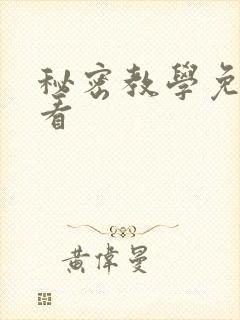 秘密教學免
看
黃偉曼